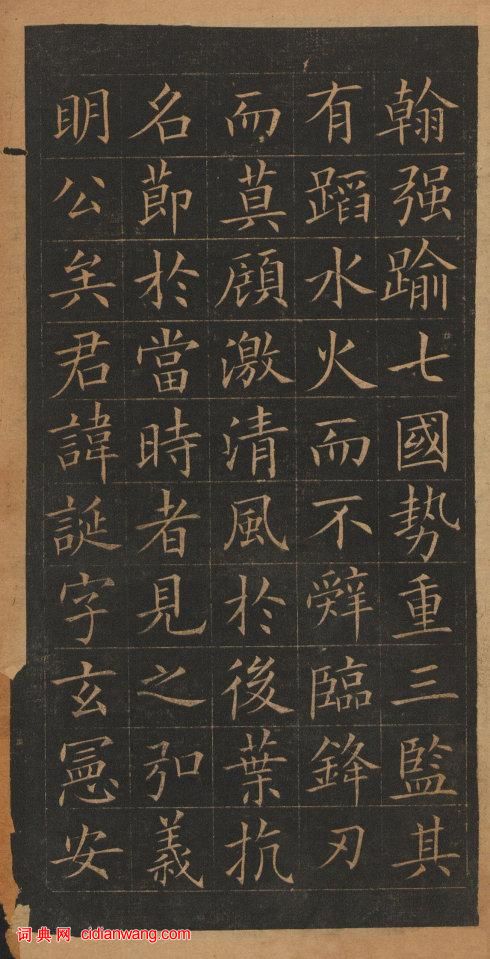 翰强踰七國勢重三監其
有蹈水火而不辤臨鋒刃
而莫顧激清風於後葉抗
名節於當時者見之弘義
明公矣君諱誕字玄憲安
词典网 cidianwang.com